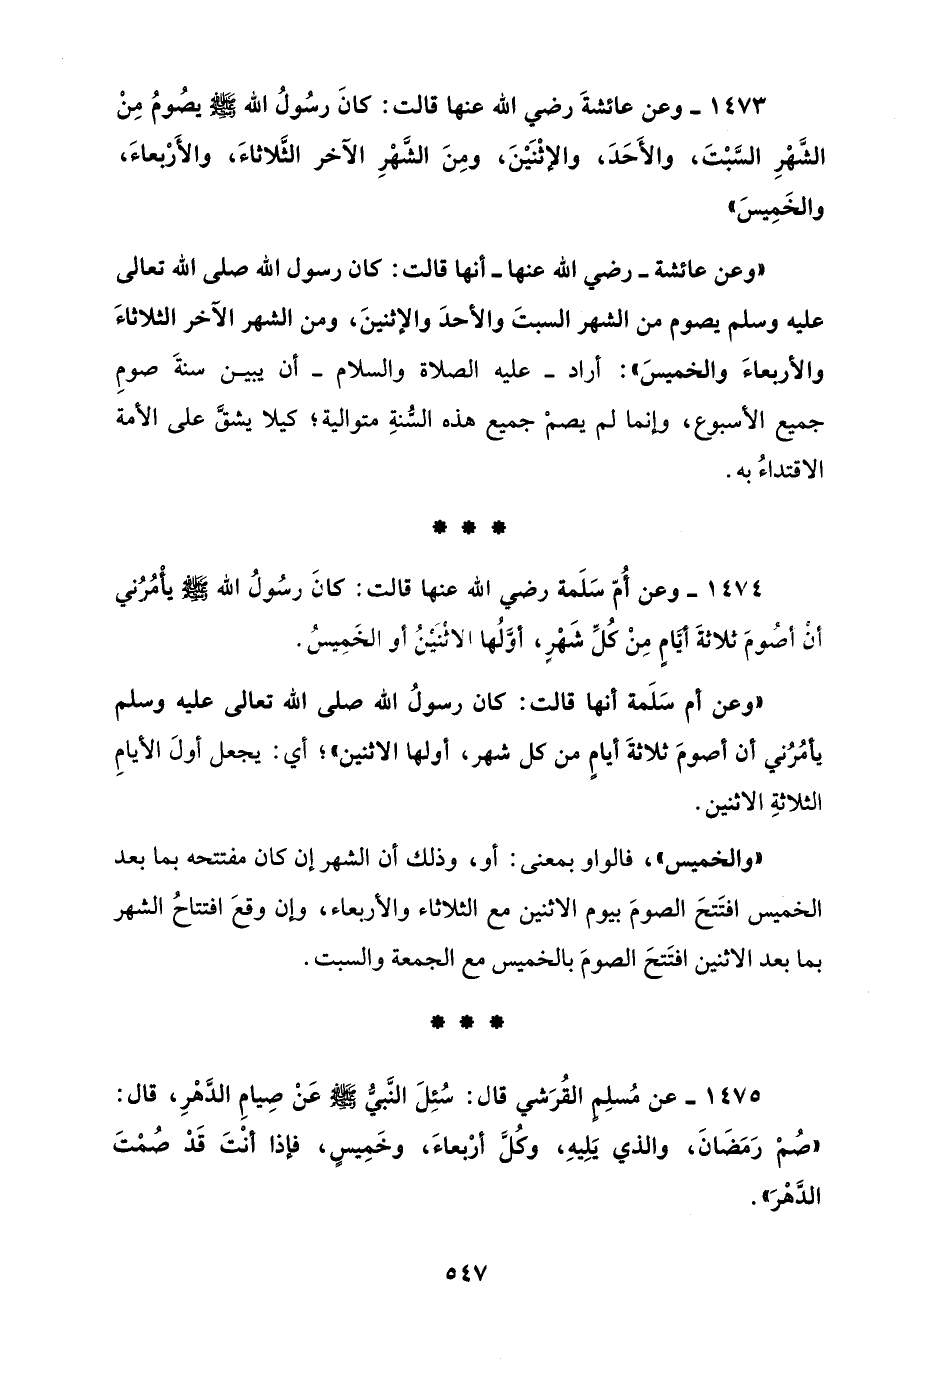 ١٤٧٣ ـ وعن عائشةَ رضي الله عنها قالت: كانَ رسُولُ الله ﷺ يصُومُ مِنْ
الشَّهْرِ السَّبْتَ، والأَحَدَ، والإثْنَيْنَ، ومِنَ الشَّهْرِ الآخر الثَّلاثاءَ، والأَرْبعاءَ،
والخَمِيسَ»
«وعن عائشة ـ رضي الله عنها ـ أنها قالت: كان رسول الله صلى الله تعالى
عليه وسلم يصوم من الشهر السبتَ والأحدَ والإثنينَ، ومن الشهر الآخر الثلاثاءَ
والأربعاءَ والخميسَ»: أراد ـ عليه الصلاة والسلام ـ أن يبين سنةَ صومِ
جميع الأسبوع، وإنما لم يصمْ جميع هذه السُّنةِ متوالية؛ كيلا يشقَّ على الأمة
الاقتداءُ به.
* * *
١٤٧٤ ـ وعن أُمّ سَلَمة رضي الله عنها قالت: كانَ رسُولُ الله ﷺ يأْمُرُني
أنْ أصُومَ ثلاثةَ أيَّامٍ مِنْ كُلِّ شَهْرٍ، أوَّلُها الاثْنَيْنُ أو الخَمِيسُ.
«وعن أم سَلَمة أنها قالت: كان رسولُ الله صلى الله تعالى عليه وسلم
يأمُرُني أن أصومَ ثلاثةَ أيامٍ من كل شهر، أولها الاثنين»؛ أي: يجعل أولَ الأيامِ
الثلاثةِ الاثنين.
«والخميس»، فالواو بمعنى: أو، وذلك أن الشهر إن كان مفتتحه بما بعد
الخميس افتَتحَ الصومَ بيوم الاثنين مع الثلاثاء والأربعاء، وإن وقعَ افتتاحُ الشهر
بما بعد الاثنين افتَتحَ الصومَ بالخميس مع الجمعة والسبت.
* * *
١٤٧٥ ـ عن مُسلِمٍ القُرَشي قال: سُئِلَ النَّبيُّ ﷺ عَنْ صِيامِ الدَّهْرِ، قال:
«صُمْ رَمَضَانَ، والذي يَلِيهِ، وكُلَّ أرْبعاءَ، وخَمِيسٍ، فإذا أنْتَ قَدْ صُمْتَ
الدَّهْرَ».
٥٤٧